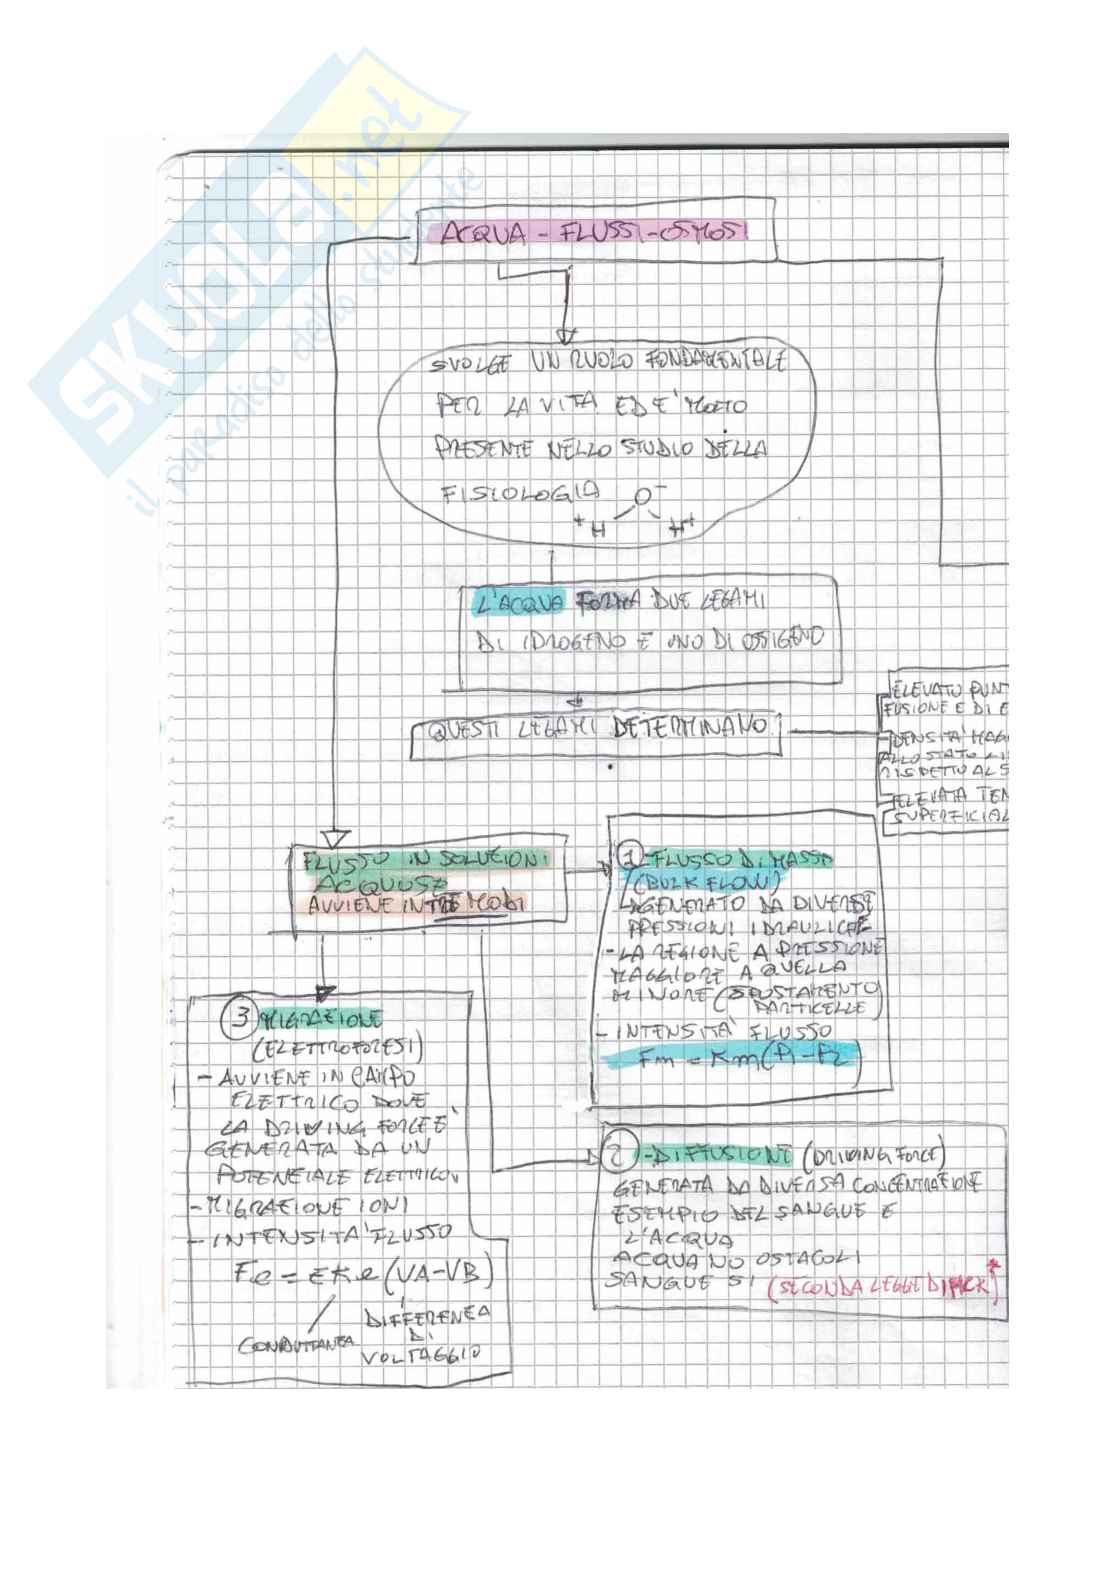 SKUOLA.net
il paradiso dello studente
ACQUA - FLUSSI - OSMOSI
SVOLGE UN RUOLO FONDAMENTALE
PER LA VITA ED E' MOLTO
PRESENTE NELLO STUDIO DELLA
FISIOLOGIA
O-
+H H+
L'ACQUA FORMA DUE LEGAMI
DI IDROGENO E UNO DI OSSIGENO
QUESTI LEGAMI DETERMINANO
ELEVATO PUNT
FUSIONE E DI E
DENSITA' MAGG
ALLO STATO LI
RISPETTO AL S
ELEVATA TEN
SUPERFICIAL
FLUSSO IN SOLUZIONI
ACQUOSE
AVVIENE IN TRE MODI
1 - FLUSSO DI MASSA
(BULK FLOW)
GENERATO DA DIVERSE
PRESSIONI IDRAULICHE
- LA REGIONE A PRESSIONE
MAGGIORE A QUELLA
MINORE (SPOSTAMENTO
PARTICELLE)
- INTENSITA' FLUSSO
Fm = Km(P1-P2)
2 - DIFFUSIONE (DRIVING FORCE)
GENERATA DA DIVERSA CONCENTRAZIONE
ESEMPIO DEL SANGUE E
L'ACQUA
ACQUA NO OSTACOLI
SANGUE SI (SECONDA LEGGE DI FICK)*
3 MIGRAZIONE
(ELETTROFORESI)
- AVVIENE IN CAMPO
ELETTRICO DOVE
LA DRIVING FORCE E'
GENERATA DA UN
POTENZIALE ELETTRICO
- MIGRAZIONE IONI
- INTENSITA' FLUSSO
Fe = EKe(VA-VB)
CONDUTTANZA
DIFFERENZA
DI
VOLTAGGIO